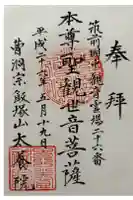 奉拝
筑前國中観音霊場二十六番
本尊聖觀世音菩薩
平成二十六年五月十九日
曹洞宗飯塚山太養院